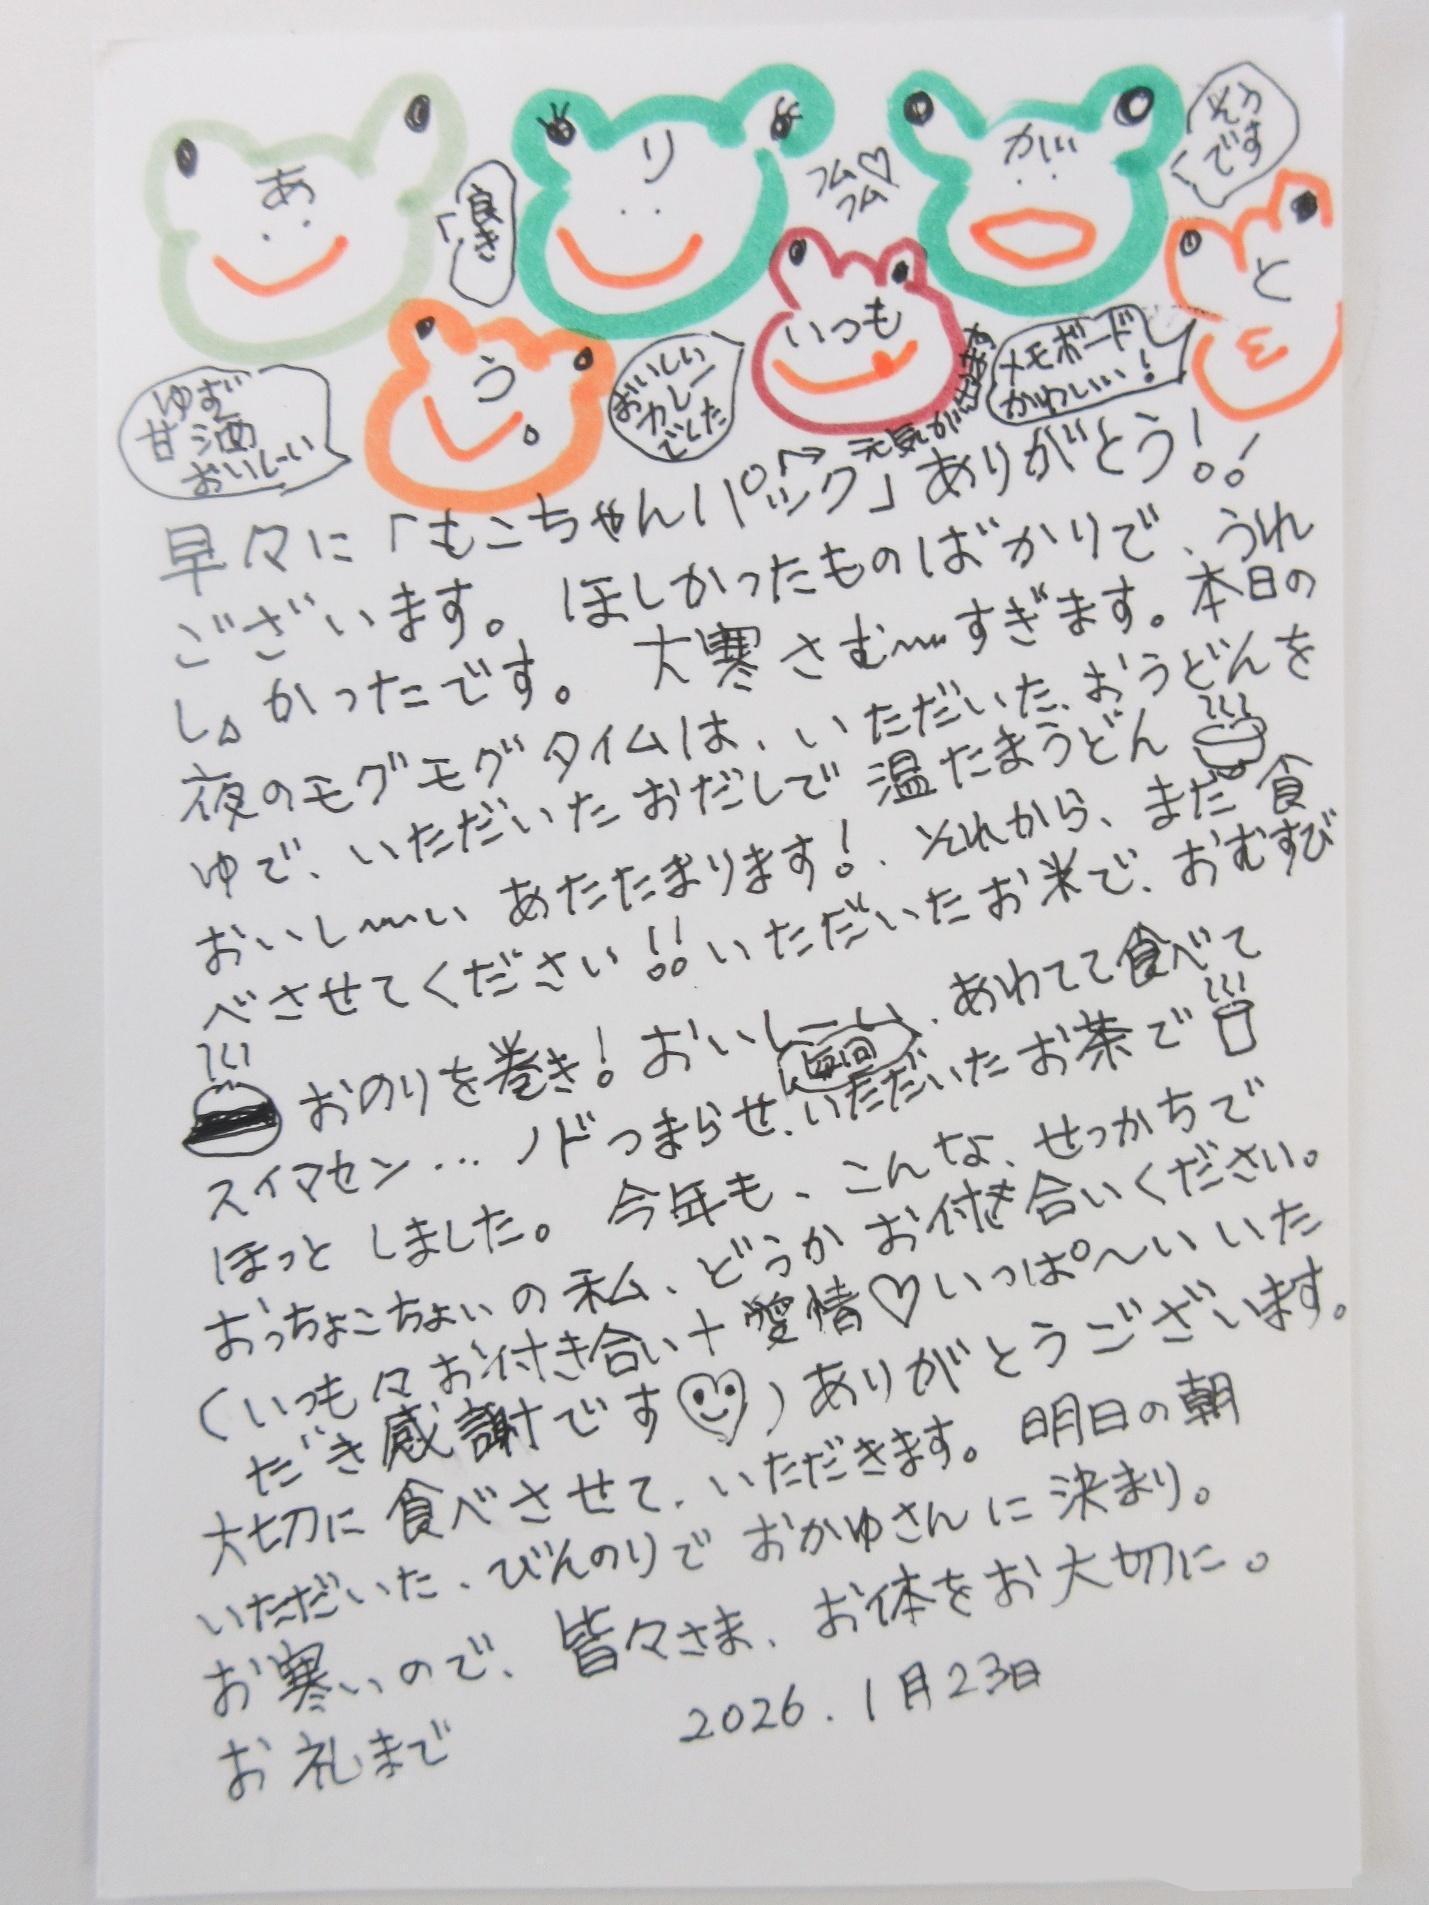 あ
り
が
と
う
いつも
良き
フム♡
フム
そう
です
ゆず
甘酒
おいしーい
おいしい
カレー
でした
メモボード
かわいい!
元気が出ます
早々に「もこちゃんパック」ありがとう!!
ございます。ほしかったものばかりで、うれ
しかったです。大寒さむ〜すぎます。本日の
夜のモグモグタイムは、いただいた、おうどんを
ゆで、いただいたおだしで温たまうどん
おいし〜い あたたまります!、それから、まだ食
べさせてください!!いただいたお米で、おむすび
おのりを巻き!おいしーい、あわてて食べて
毎回
スイマセン…ノドつまらせ、いただいたお茶で
ほっとしました。今年も、こんな、せっかちで
おっちょこちょいの私、どうかお付き合いください。
(いつも々お付き合い+愛情♡いっぱ〜いいた
だき感謝です)ありがとうございます。
大切に食べさせて、いただきます。明日の朝
いただいた、びんのりでおかゆさんに決まり。
お寒いので、皆々さま、お体をお大切に。
お礼まで
2026.1月23日